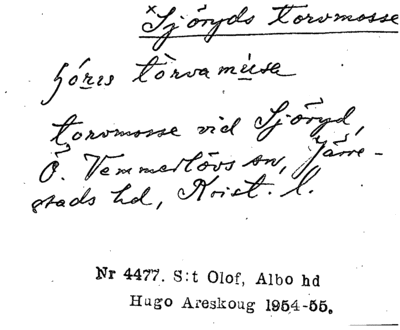 ×Sjöryds torvmosse
torvmosse vid Sjöryd,
Ö. Vemmerlövs sn, Järre-
stads hd, Krist. l.
Nr 4477. S:t Olof, Albo hd
Hugo Areskoug 1954-55.